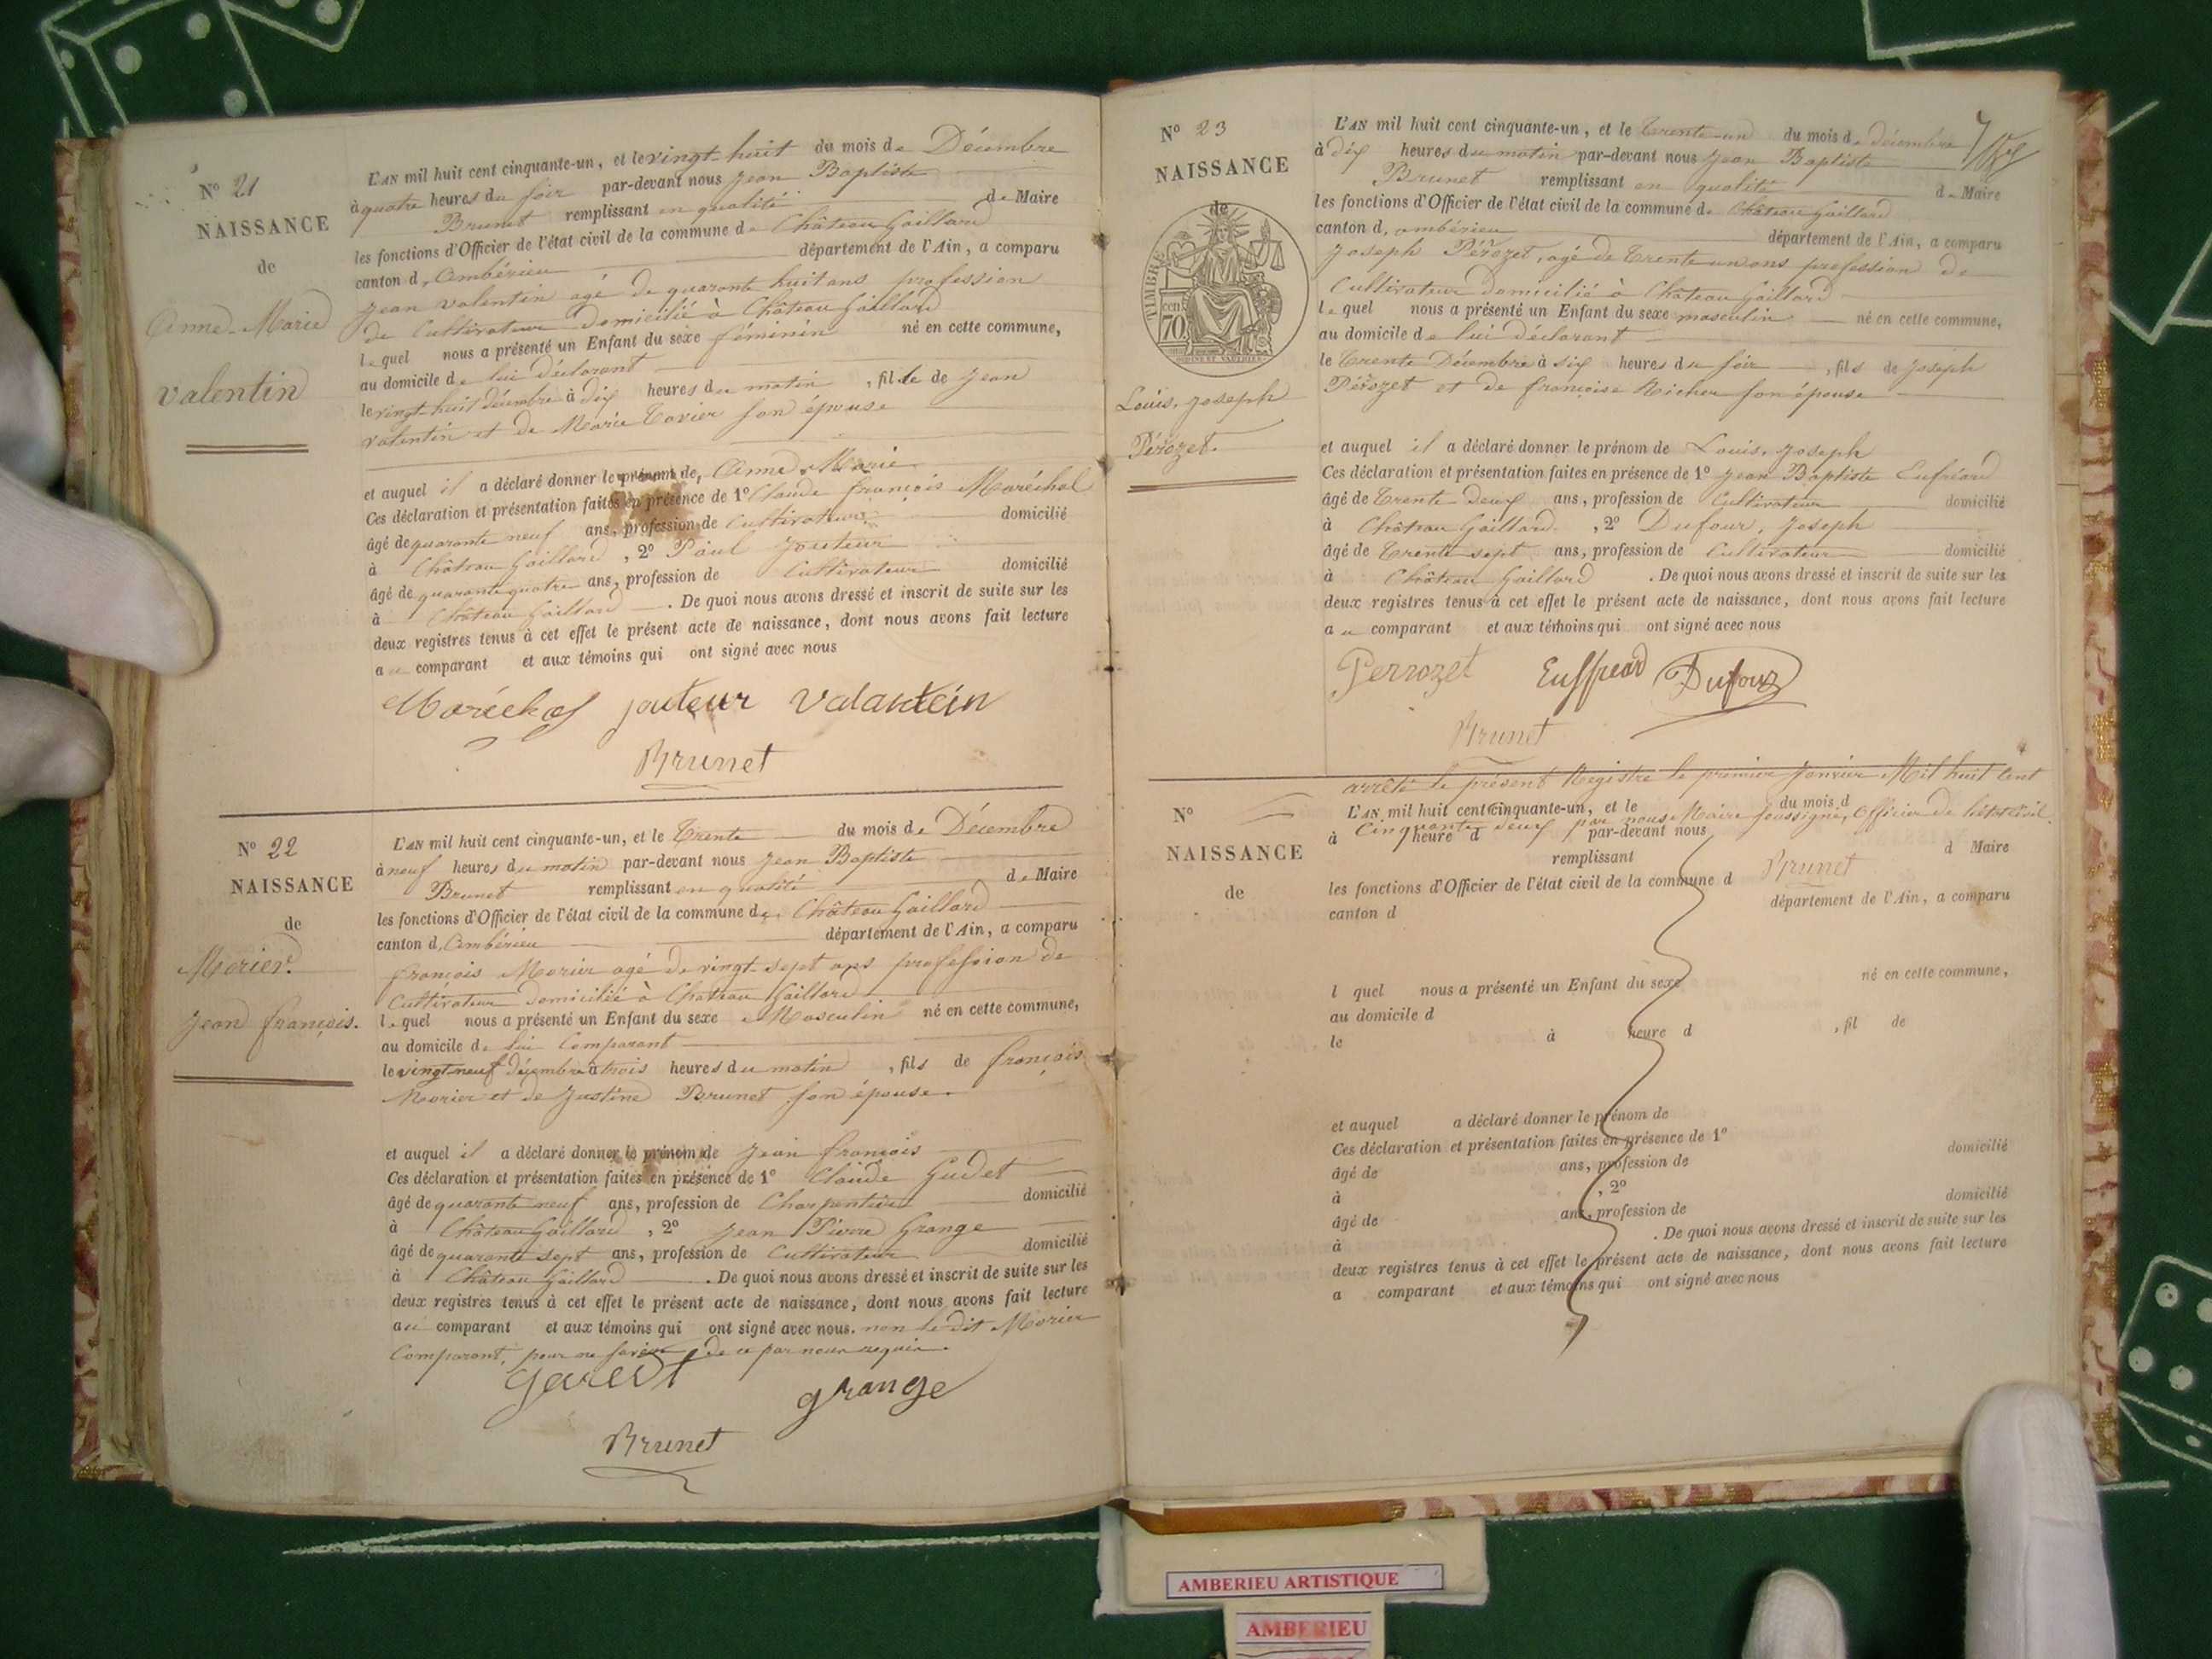 N° 21
NAISSANCE
de
Anne-Marie
Valentin
L'AN mil huit cent cinquante-un, et le vingt-huit du mois de Décembre
à quatre heures du soir par-devant nous Jean Baptiste
Brunet remplissant en qualité de Maire
les fonctions d'Officier de l'état civil de la commune de Château Gaillard
canton d'Ambérieu département de l'Ain, a comparu
Jean Valentin agé de quarante huit ans profession
de Cultivateur domicilié à Château Gaillard
lequel nous a présenté un Enfant du sexe féminin né en cette commune,
au domicile de lui déclarant
le vingt huit décembre à dix heures du matin, fille de Jean
Valentin et de Marie Tavier son épouse
et auquel il a déclaré donner le prénom de Anne Marie
Ces déclaration et présentation faites en présence de 1° Claude françois Maréchal
âgé de quarante neuf ans, profession de Cultivateur domicilié
à Château Gaillard, 2° Paul Jouteur
âgé de quarante quatre ans, profession de Cultivateur domicilié
à Château Gaillard. De quoi nous avons dressé et inscrit de suite sur les
deux registres tenus à cet effet le présent acte de naissance, dont nous avons fait lecture
au comparant et aux témoins qui ont signé avec nous
Maréchal jouteur Valantein
Brunet
N° 22
NAISSANCE
de
Morier
Jean françois.
L'AN mil huit cent cinquante-un, et le Trente du mois de Décembre
à neuf heures du matin par-devant nous Jean Baptiste
Brunet remplissant en qualité de Maire
les fonctions d'Officier de l'état civil de la commune de Château Gaillard
canton d'Ambérieu département de l'Ain, a comparu
françois Morier agé de vingt-sept ans profession de
Cultivateur domicilié à Château Gaillard
lequel nous a présenté un Enfant du sexe Masculin né en cette commune,
au domicile de lui Comparant
le vingt-neuf décembre à trois heures du matin, fils de françois
Morier et de Justine Brunet son épouse.
et auquel il a déclaré donner le prénom de Jean françois
Ces déclaration et présentation faites en présence de 1° Claude Gudet
âgé de quarante neuf ans, profession de Charpentier domicilié
à Château Gaillard, 2° Jean Pierre Grange
âgé de quarante sept ans, profession de Cultivateur domicilié
à Château Gaillard. De quoi nous avons dressé et inscrit de suite sur les
deux registres tenus à cet effet le présent acte de naissance, dont nous avons fait lecture
au comparant et aux témoins qui ont signé avec nous. non le dit Morier
Comparant, pour ne savoir de ce par nous requis.
grange
Brunet
N° 23
NAISSANCE
de
TIMBRE
70 cen
Louis, Joseph
Pérozet.
L'AN mil huit cent cinquante-un, et le Trente-un du mois de décembre
à dix heures du matin par-devant nous Jean Baptiste
Brunet remplissant en qualité de Maire
les fonctions d'Officier de l'état civil de la commune de Château Gaillard
canton d'ambérieu département de l'Ain, a comparu
Joseph Pérozet, agé de Trente un ans profession de
Cultivateur domicilié à Château Gaillard
lequel nous a présenté un Enfant du sexe masculin né en cette commune,
au domicile de lui déclarant
le Trente Décembre à six heures du soir, fils de Joseph
Pérozet et de françoise Richer son épouse
et auquel il a déclaré donner le prénom de Louis, Joseph
Ces déclaration et présentation faites en présence de 1° Jean Baptiste Eufréard
âgé de Trente-deux ans, profession de Cultivateur domicilié
à Château Gaillard, 2° Dufour, Joseph
âgé de Trente sept ans, profession de Cultivateur domicilié
à Château Gaillard. De quoi nous avons dressé et inscrit de suite sur les
deux registres tenus à cet effet le présent acte de naissance, dont nous avons fait lecture
au comparant et aux témoins qui ont signé avec nous
Perrozet Dufour
Brunet
arrêté le présent Registre le premier Janvier Mil huit Cent
N°
NAISSANCE
de
L'AN mil huit cent cinquante-un, et le du mois d
Cinquante deux par nous Maire soussigné, Officier de l'état Civil.
à heure d par-devant nous
remplissant d Maire
Brunet
les fonctions d'Officier de l'état civil de la commune d
canton d département de l'Ain, a comparu
l quel nous a présenté un Enfant du sexe né en cette commune,
au domicile d
le à heure d , fil de
et auquel a déclaré donner le prénom de
Ces déclaration et présentation faites en présence de 1°
âgé de ans, profession de domicilié
à , 2°
âgé de ans, profession de domicilié
à . De quoi nous avons dressé et inscrit de suite sur les
deux registres tenus à cet effet le présent acte de naissance, dont nous avons fait lecture
a comparant et aux témoins qui ont signé avec nous
AMBERIEU ARTISTIQUE
AMBERIEU